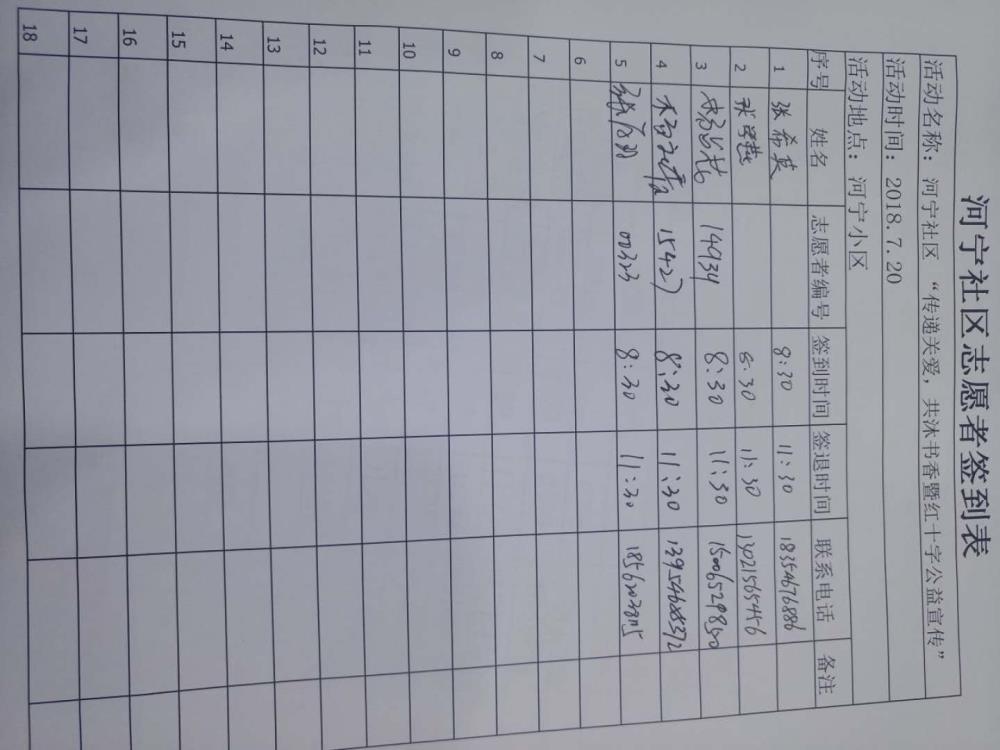 河宁社区志愿者签到表
活动名称：河宁社区 “传递关爱，共沐书香暨红十字公益宣传”
活动时间：2018.7.20
活动地点：河宁小区
序号 姓名 志愿者编号 签到时间 签退时间 联系电话 备注
1 张希英 8:30 11:30 18354676886
2 张 8:30 11:30 13021565456
3 14934 8:30 11:30
4 15427 8:30 11:30 13954688372
5 00323 8:30 11:30
6
7
8
9
10
11
12
13
14
15
16
17
18